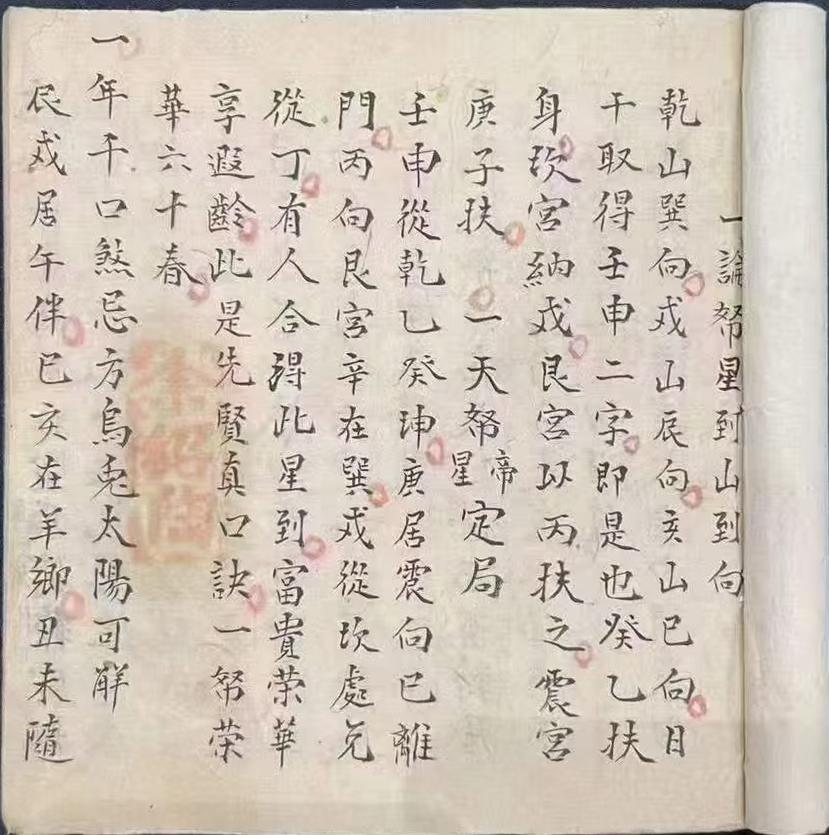 一論帑星到山到向
乾山巽向戍山辰向亥山巳向日
干取得壬申二字即是也癸乙扶
身坎宮納戍艮宮以丙扶之震宮
庚子扶 一天帑星帝定局
壬申從乾乙癸坤庚居震向巳離
門丙向艮宮辛在巽戍從坎處兌
從丁有人合得此星到富貴荣華
享遐齡此是先賢真口訣一帑荣
華六十春
一年干口煞忌方烏兎太陽可觧
辰戍居午伴巳亥在羊鄉丑未隨